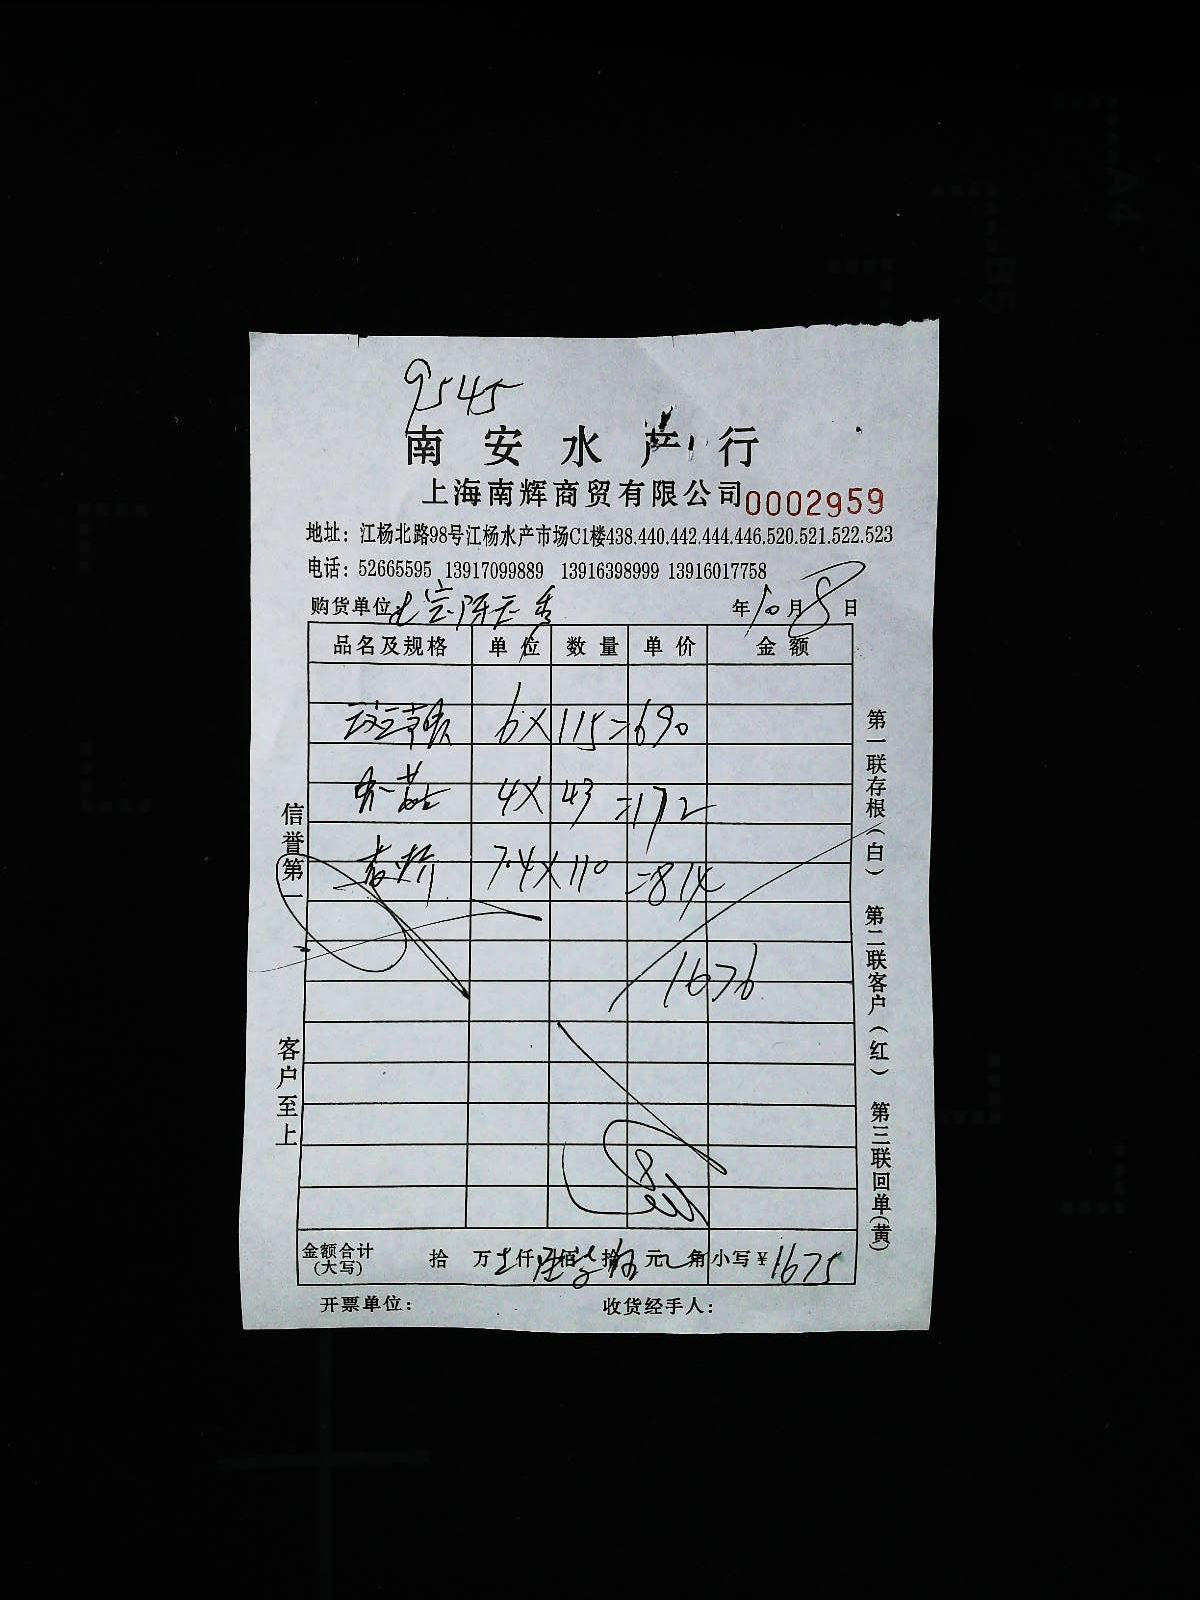 9545
南安水产行
上海南辉商贸有限公司 0002959
地址：江杨北路98号江杨水产市场C1楼438.440.442.444.446.520.521.522.523
电话：52665595 13917099889 13916398999 13916017758
购货单位 年10月8日
品名及规格 单位 数量 单价 金额
6×115=690
4×43=172
7.4×110=814
1676
金额合计(大写) 拾 万 仟 佰 拾 元 角 小写¥1675
开票单位： 收货经手人：
信誉第一
客户至上
第一联存根(白) 第二联客户(红) 第三联回单(黄)